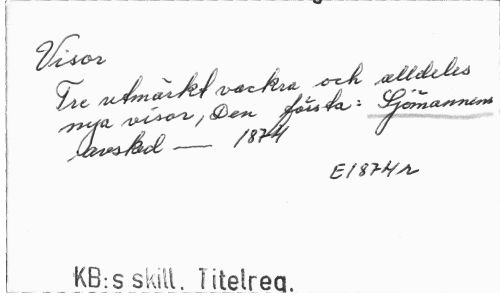 Visor
Tre utmärkt vackra och alldeles
nya visor, Den första: Sjömannens
avsked — 1874
E1874r
KB:s skill. Titelreg.